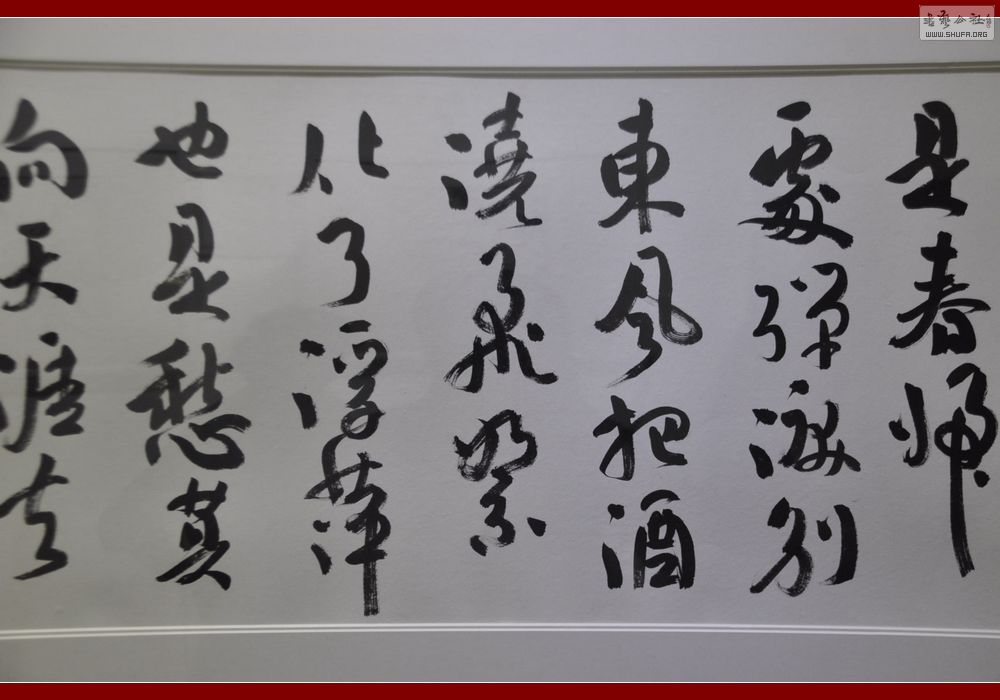 是春歸
處彈淚別
東風把酒
澆飛絮
化了浮萍
也是愁莫
向天涯去
書藝公社
WWW.SHUFA.ORG